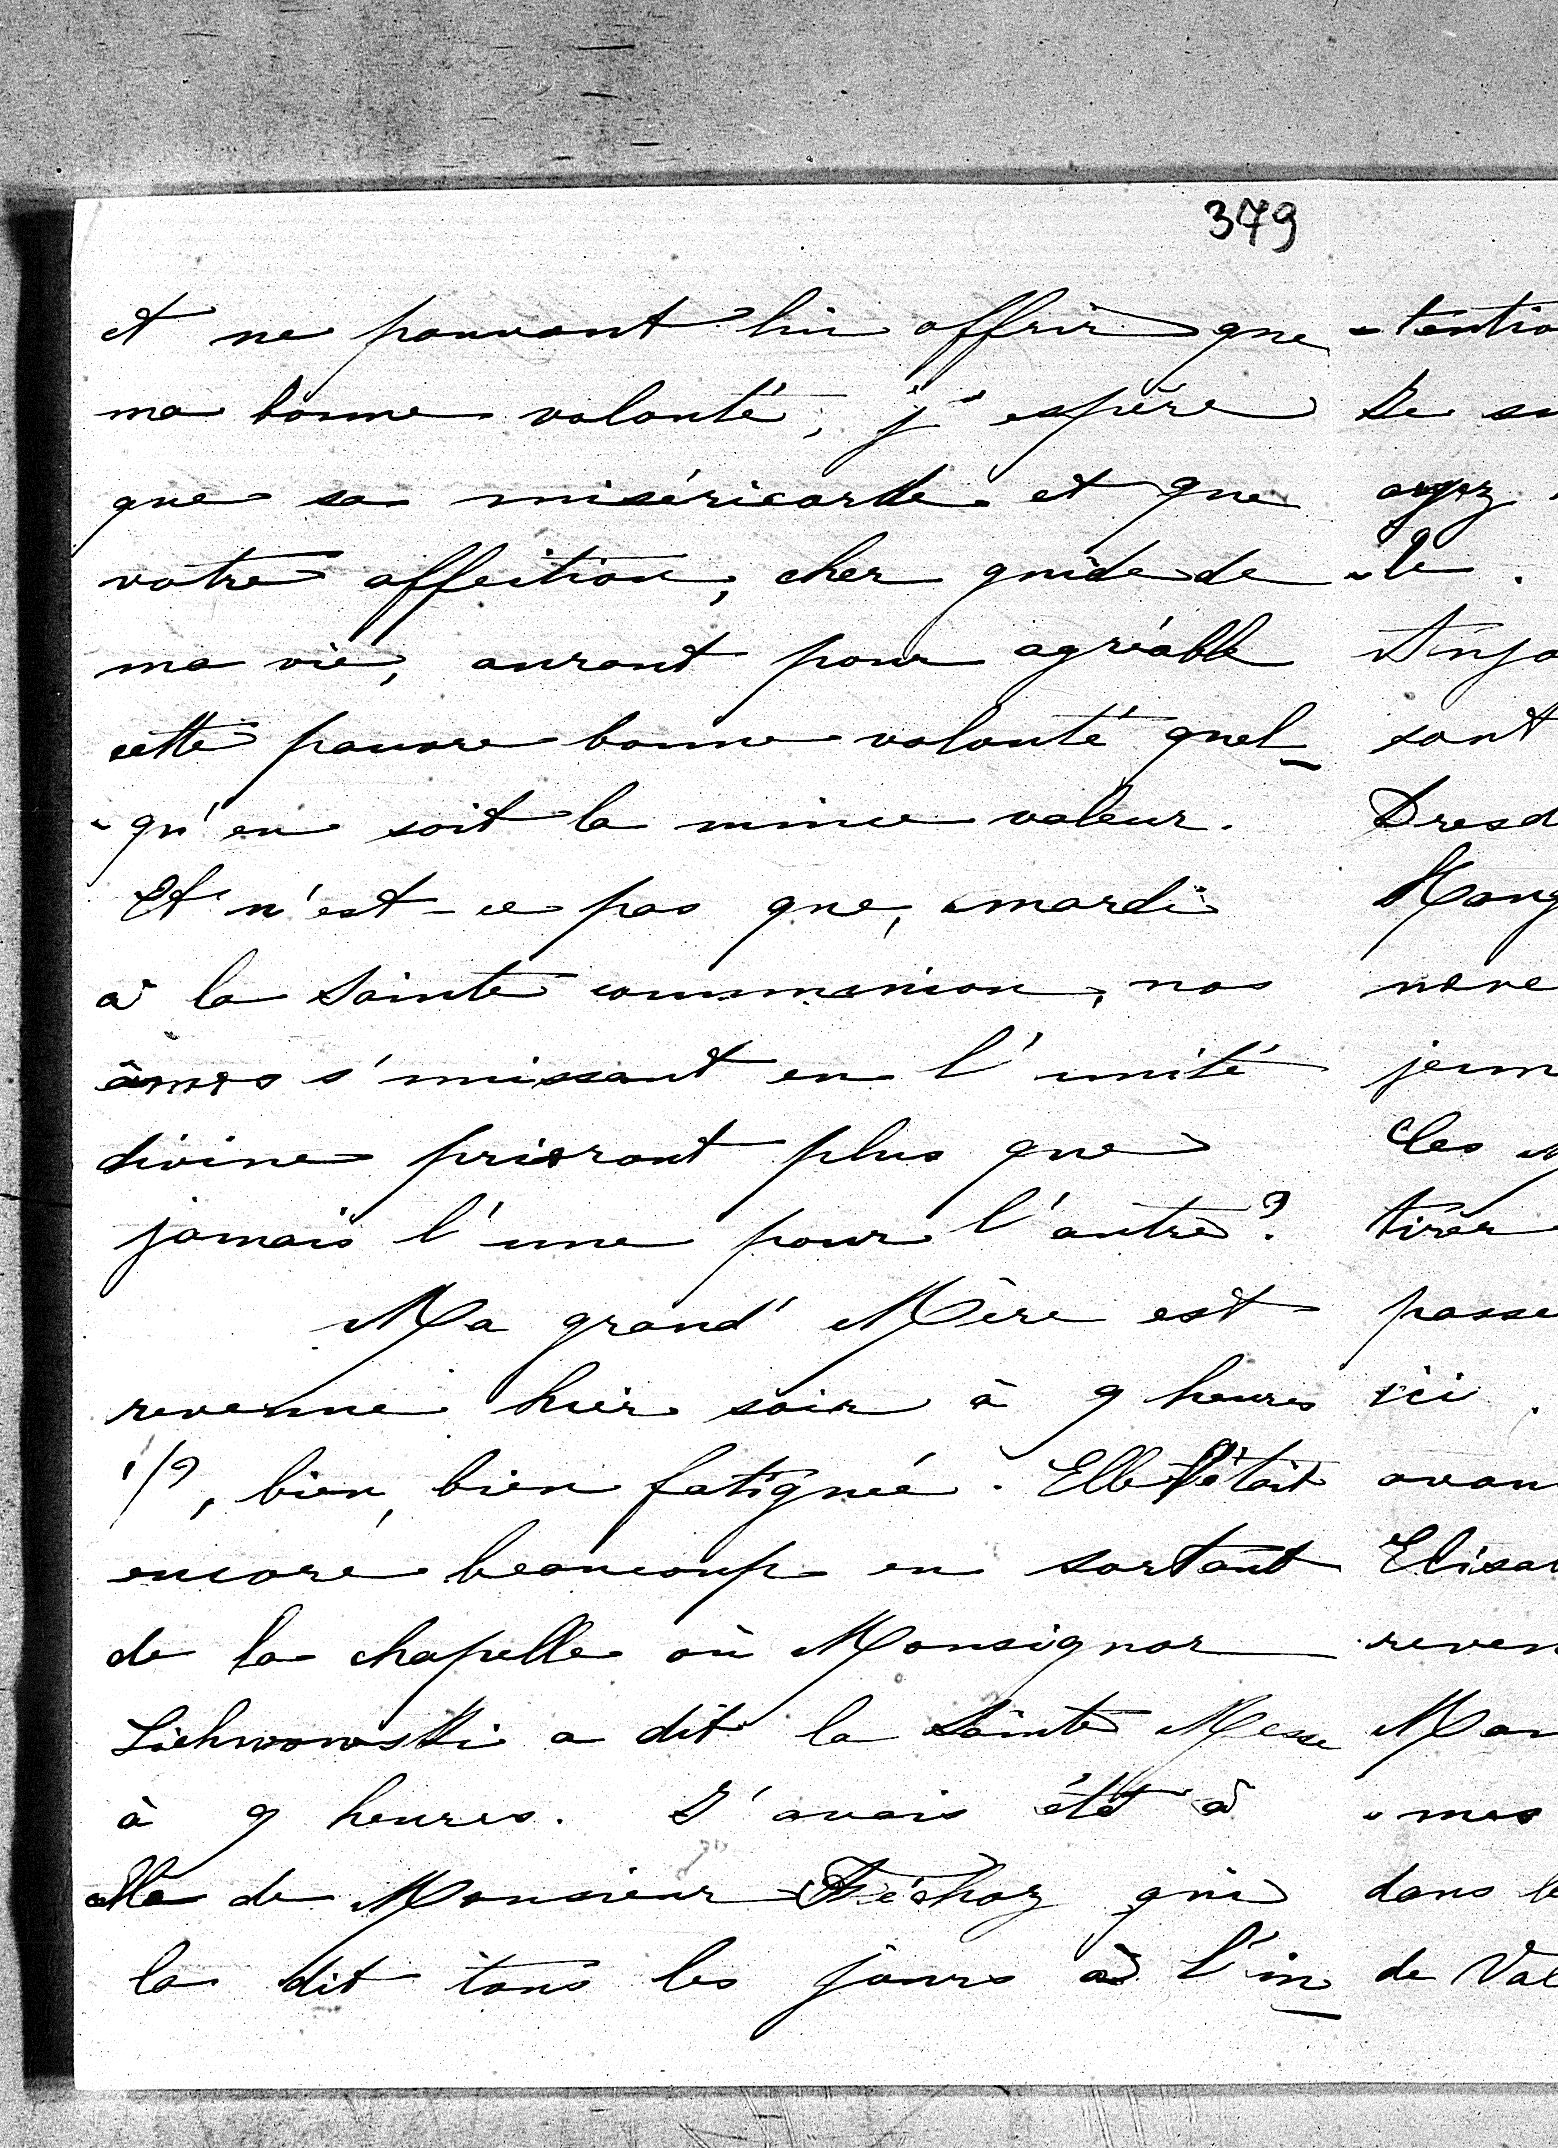 379
et ne pouvant lui offrir que
ma bonne volonté, j'espère
que sa miséricorde et que
votre affection, cher guide de
ma vie, auront pour agréable
cette pauvre bonne volonté quel-
-qu'en soit la mince valeur.
Et n'est-ce pas que, mardi
à la Sainte communion, nos
âmes s'unissant en l'unité
divine prieront plus que
jamais l'une pour l'autre?
Ma grand' Mère est
revenue hier soir à 9 heures
1/2, bien, bien fatiguée. Elle l'était
encore beaucoup en sortant
de la chapelle où Monsignor
Lichnowski a dit la Sainte Messe
à 9 heures. J'avais été à
celle de Monsieur qui
la dit tous les jours à l'in-
-tentio
De su
ayez
-le.
d'Anjo
sont
Dresd
Mong
neve
jeun
les
tirer
passe
ici.
avan
Elisa
reven
Mon
-mes
dans le
de Val